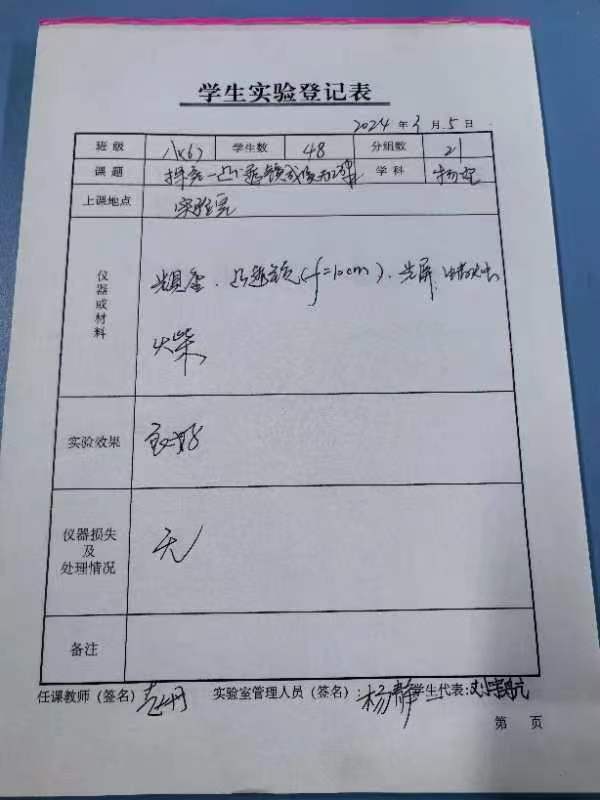 学生实验登记表
2024 年 3 月 5 日
班级 八(6) 学生数 48 分组数 21
课题 探究凸透镜成像规律 学科 物理
上课地点 实验室
仪器或材料 光具座、凸透镜(f=10cm)、光屏、蜡烛
火柴
实验效果 良好
仪器损失及处理情况 无
备注
任课教师（签名） 实验室管理人员（签名）: 杨静 学生代表:
第 页